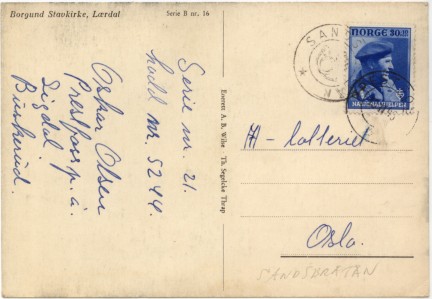 Borgund Stavkirke, Lærdal
Serie B nr. 16
Serie nr. 21.
hald nr. 5244.
Oskar Olsen
Prestfoss p.å.
Sigdal
Buskerud.
Eneret A. B. Wilse
Th. Segelcke Thrap
NORGE 30+10
NASJONALHJELPEN
SAN
H - lotteriet
Oslo.
SANDSBRATAN